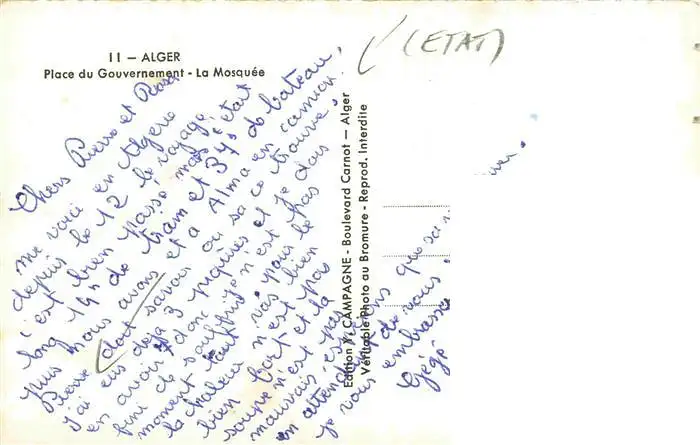 11 — ALGER
Place du Gouvernement - La Mosquée
(ETAT)
Chers Pierre et Rosa
me voici en Algérie
depuis le 12 le voyage
c'est bien passé mais c'était
long 14h de train et 34h de bateau,
puis nous avons été a Alma en camion.
Pierre doit savoir ou sa ce trouve.
J'ai eus déjà 3 piqûres et je dois
en avoir donc je n'est pas
fini de souffrir pour le
moment tout vas bien
la chaleur n'est pas
bien fort et la
soupe n'est pas
mauvais,
en attendant que
de vous.
je vous embrasse
Gégé
Edition X. CAMPAGNE - Boulevard Carnot — Alger
Véritable Photo au Bromure - Reprod. Interdite